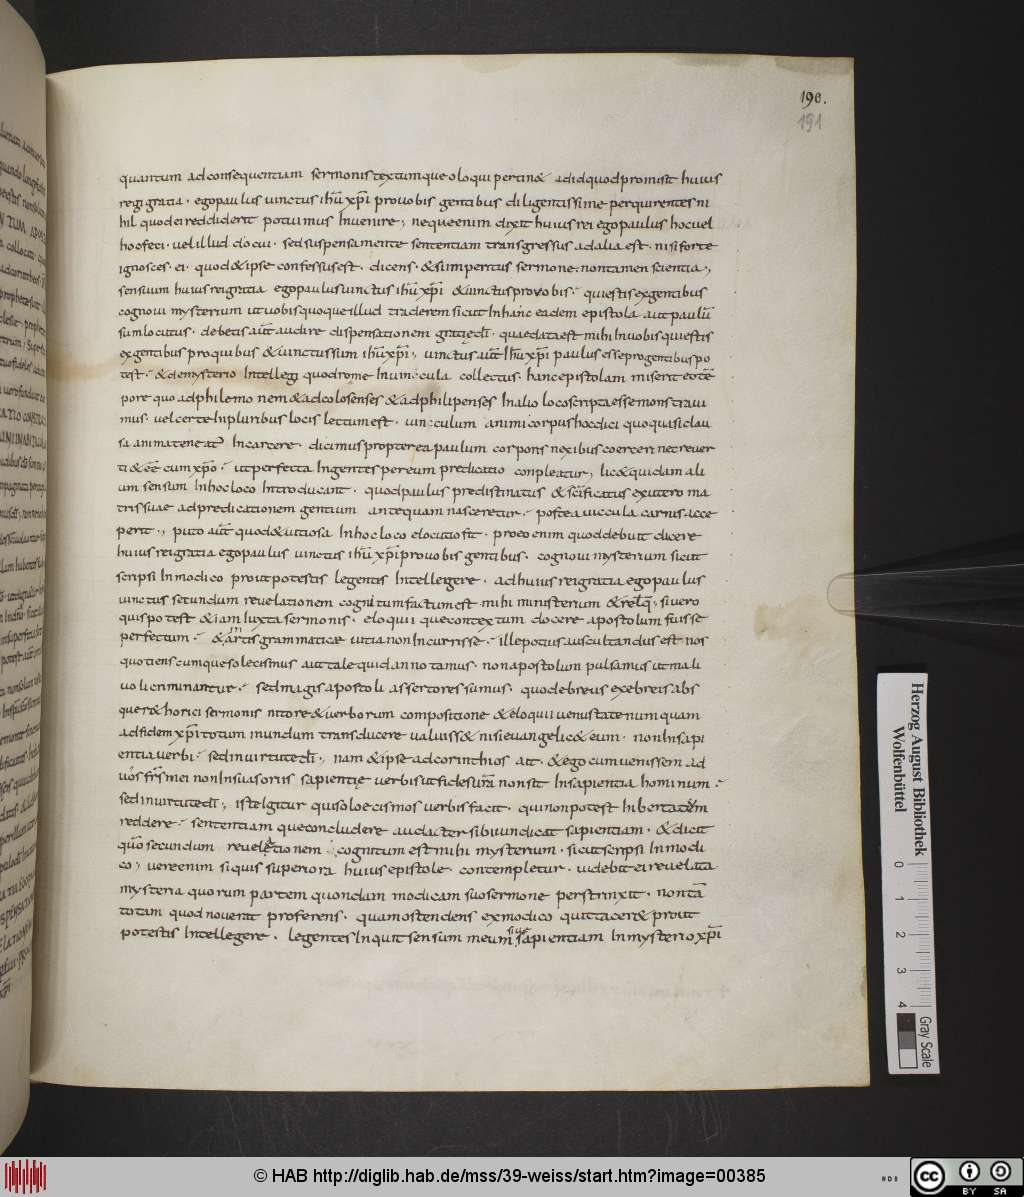 190.
191
quantum ad consequentiam sermonis textumque oloqui pertin& ad id quod promisit huius
rei gratia · ego paulus uinctus ihũ xp̃i pro uobis gentibus diligentissime perquirentes ni
hil quod ei reddiderit potuimus Inuenire ; neque enim dixit huius rei ego paulus hoc uel
hoc feci · uel illud docui · sed suspensa mente sententiam transgressus ad alia est · nisi forte
ignosces · ei · quod & ipse confessus est · dicens · & si imperitus sermone · non tamen scientia ;
sensuum huius rei gratia ego paulus uinctus ihũ xp̃i & uinctus pro uobis · qui estis ex gentibus
cognoui mysterium ut uobis quoque illud traderem sicut In hanc eadem epistola aut paulũ
sum locutus · debetis aũt audire dispensationem gratię dĩ · quae data est mihi In uobis qui estis
ex gentibus pro quibus & uinctus sum ihũ xp̃i ; uinctus aũt ihũ xp̃i paulus esse pro gentibus po
test · & de mysterio Intellegi quod rome In uincula collectus · hanc epistolam miserit eo tẽ
pore quo ad philemonem & ad colosenses & ad philipenses In alio loco scripta esse monstraui
mus · uel certe In pluribus locis lectum est · uinculum animi corpus hoc dici quo quasi clau
sa anima teneat' In carcere · dicimus propterea paulum corporis nexibus coerceri ne reuer
ti & eẽ cum xp̃o · ut perfecta In gentes per eum predicatio conpleatur ; lic& quidam ali
um sensum In hoc loco Introducant · quod paulus predistinatus & sc̃ificatus ex utero ma
tris suae ad predicationem gentium antequam nasceretur · postea uiccula carnis acce
perit ; puto aũt quod & uitiosa In hoc loco elocutio sit · pro eo enim quod debuit dicere
huius rei gratia ego paulus uinctus ihũ xp̃i pro uobis gentibus · cognoui mysterium sicut
scripsi In modico prout potestis legentes Intellegere · ad huius rei gratia ego paulus
uinctus secundum reuelationem cognitum factum est mihi ministerium & relq̃ ; si uero
quis potest & iam Iuxta sermonis · eloquii que contextum docere apostolum fuisse
perfectum · & artis grammaticae uitia non Incurrisse · ille potius auscultandus est nos
quotienscumque solecismus aut tale quid annotamus · non apostolum pulsamus ut mali
uoli criminantur · sed magis apostoli assertores sumus · quod ebreus ex ebreis abs
que r&horici sermonis nitore & uerborum compositione & eloquii uenustate numquam
ad fidem xp̃i totum mundum transducere ualuiss& nisi euangelic& eum · non In sapi
entia uerbi · sed in uirtute dĩ ; nam & ipse ad corinthios ait · & ego cum uenissem ad
uos fr̃s mei non In suasoriis sapientię uerbis ut fides ur̃a non sit In sapientia hominum ·
sed in uirtute dĩ ; iste Igitur qui soloecismos uerbis facit · qui non potest hiberbatum
reddere · sententiam que concludere audacter sibi uindicat sapientiam · & dicit
qm̃ secundum reuelationem cognitum est mihi mysterium · sicut scripsi In modi
co ; uere enim si quis superiora huius epistole · contempletur · uidebit ei reuelata
mysteria quorum partem quondam modicam suo sermone perstrinxit · non tã
totum quod nouerit proferens · quam ostendens ex modico quit tacer& prout
potestis Intellegere · legentes Inquit sensum meum siue sapientiam In mysterio xp̃i
Herzog August Bibliothek
Wolfenbüttel
0 1 2 3 4
Gray Scale
© HAB http://diglib.hab.de/mss/39-weiss/start.htm?image=00385
cc BY SA